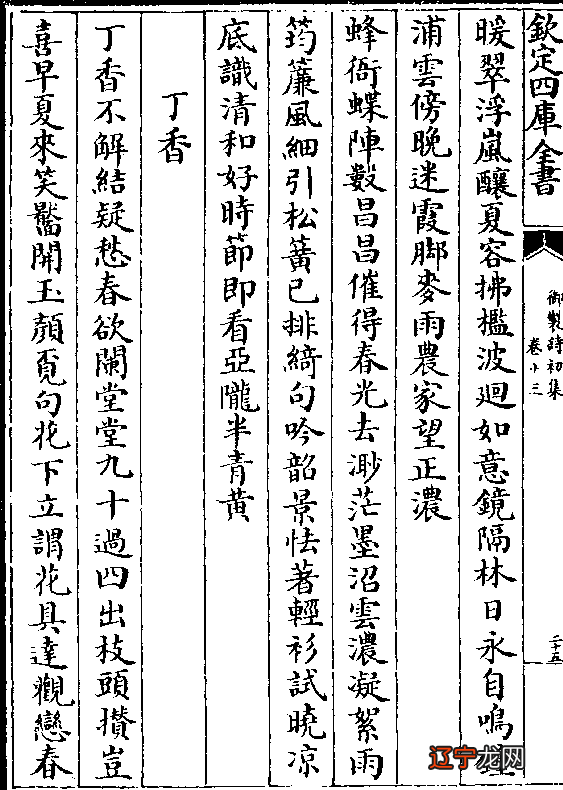 欽定四庫全書
御製詩初集
卷十三
二十五
暖翠浮嵐釀夏容拂檻波廻如意鏡隔林日永自鳴鐘
浦雲傍晚迷霞脚麥雨農家望正濃
蜂衙蝶陣數昌昌催得春光去渺茫墨沼雲濃凝絮雨
筠簾風細引松簧已排綺句吟韶景怯著輕衫試曉凉
底識清和好時節即看亞隴半青黃
丁香
丁香不解結疑愁春欲闌堂堂九十過四出枝頭攢豈
喜早夏來笑靨開玉顏覓句花下立謂花具達觀戀春
辽宁龙网